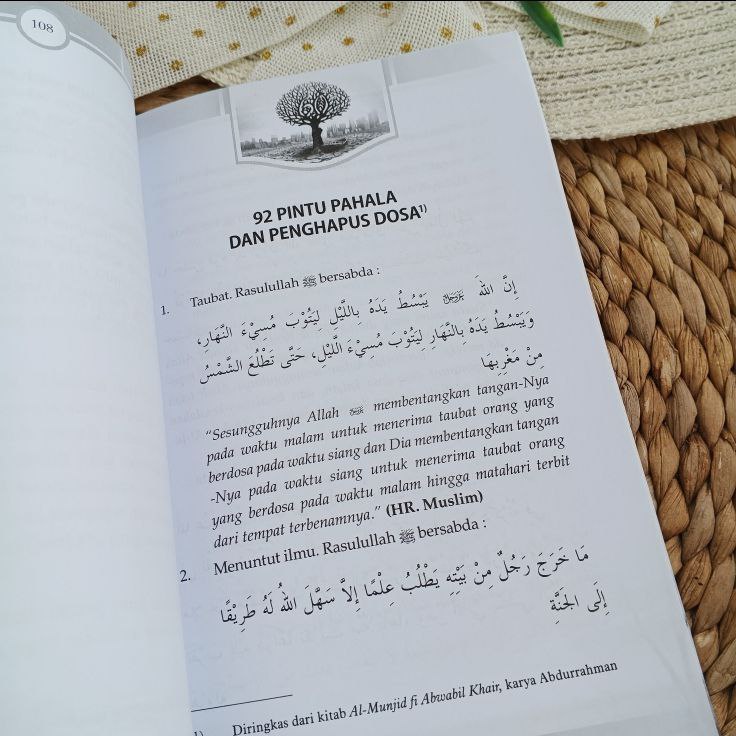 108
92 PINTU PAHALA
DAN PENGHAPUS DOSA¹⁾
1. Taubat. Rasulullah ﷺ bersabda :
إِنَّ اللهَ يَبْسُطُ يَدَهُ بِاللَّيْلِ لِيَتُوْبَ مُسِيْءَ النَّهَارِ،
وَيَبْسُطُ يَدَهُ بِالنَّهَارِ لِيَتُوْبَ مُسِيْءَ اللَّيْلِ، حَتَّى تَطْلُعَ الشَّمْسُ
مِنْ مَغْرِبِهَا
“Sesungguhnya Allah membentangkan tangan-Nya
pada waktu malam untuk menerima taubat orang yang
berdosa pada waktu siang dan Dia membentangkan tangan
-Nya pada waktu siang untuk menerima taubat orang
yang berdosa pada waktu malam hingga matahari terbit
dari tempat terbenamnya.” (HR. Muslim)
2. Menuntut ilmu. Rasulullah ﷺ bersabda :
مَا خَرَجَ رَجُلٌ مِنْ بَيْتِهِ يَطْلُبُ عِلْمًا إِلاَّ سَهَّلَ اللهُ لَهُ طَرِيْقًا
إِلَى الجَنَّةِ
1) Diringkas dari kitab Al-Munjid fi Abwabil Khair, karya Abdurrahman